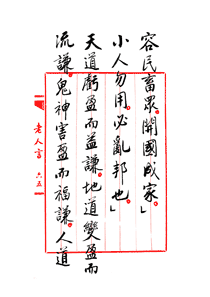 容民畜眾。開國成家。
小人勿用。必亂邦也。」
天道虧盈而益謙。地道變盈而
流謙。鬼神害盈而福謙。人道
老人言 六五